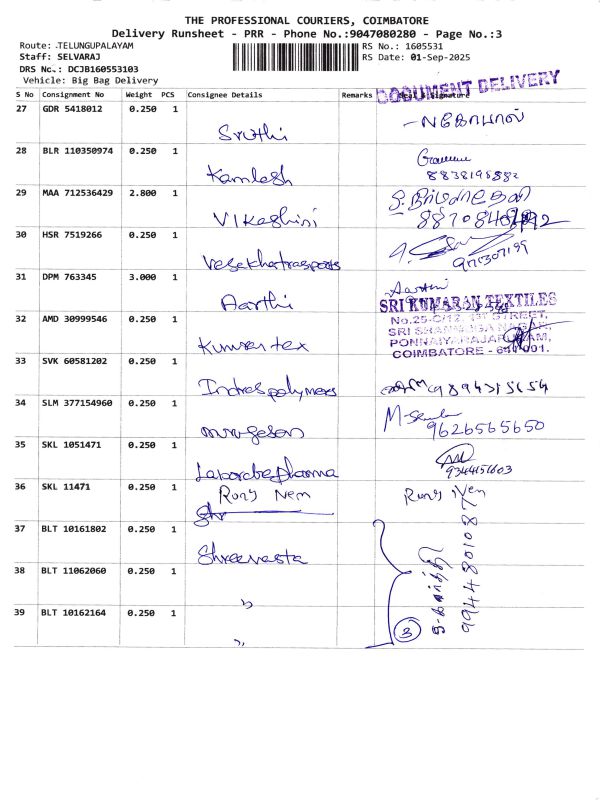 THE PROFESSIONAL COURIERS, COIMBATORE
Delivery Runsheet - PRR - Phone No.:9047080280 - Page No.:3
Route: TELUNGUPALAYAM
Staff: SELVARAJ
DRS No.: DCJB160553103
Vehicle: Big Bag Delivery
RS No.: 1605531
RS Date: 01-Sep-2025
DOCUMENT DELIVERY
S No Consignment No Weight PCS Consignee Details Remarks Seal & Signature
27 GDR 5418012 0.250 1
Sruthi
28 BLR 110350974 0.250 1
Kamlesh
8838196882
29 MAA 712536429 2.800 1
Vikashini
30 HSR 7519266 0.250 1
31 DPM 763345 3.000 1
Aarthi
Aarthi
SRI KUMARAN TEXTILES
No.25-C/12, 1ST STREET,
SRI SHANMUGA NAGAR,
PONNAIYARAJAPURAM,
COIMBATORE - 641 001.
32 AMD 30999546 0.250 1
Kumaran tex
33 SVK 60581202 0.250 1
Indras polymers
9894315654
34 SLM 377154960 0.250 1
Murugeson
9626565650
35 SKL 1051471 0.250 1
9344151603
36 SKL 11471 0.250 1
Rony Nem
Rony Ven
37 BLT 10161802 0.250 1
Shreevasta
38 BLT 11062060 0.250 1
39 BLT 10162164 0.250 1
3
9944801087